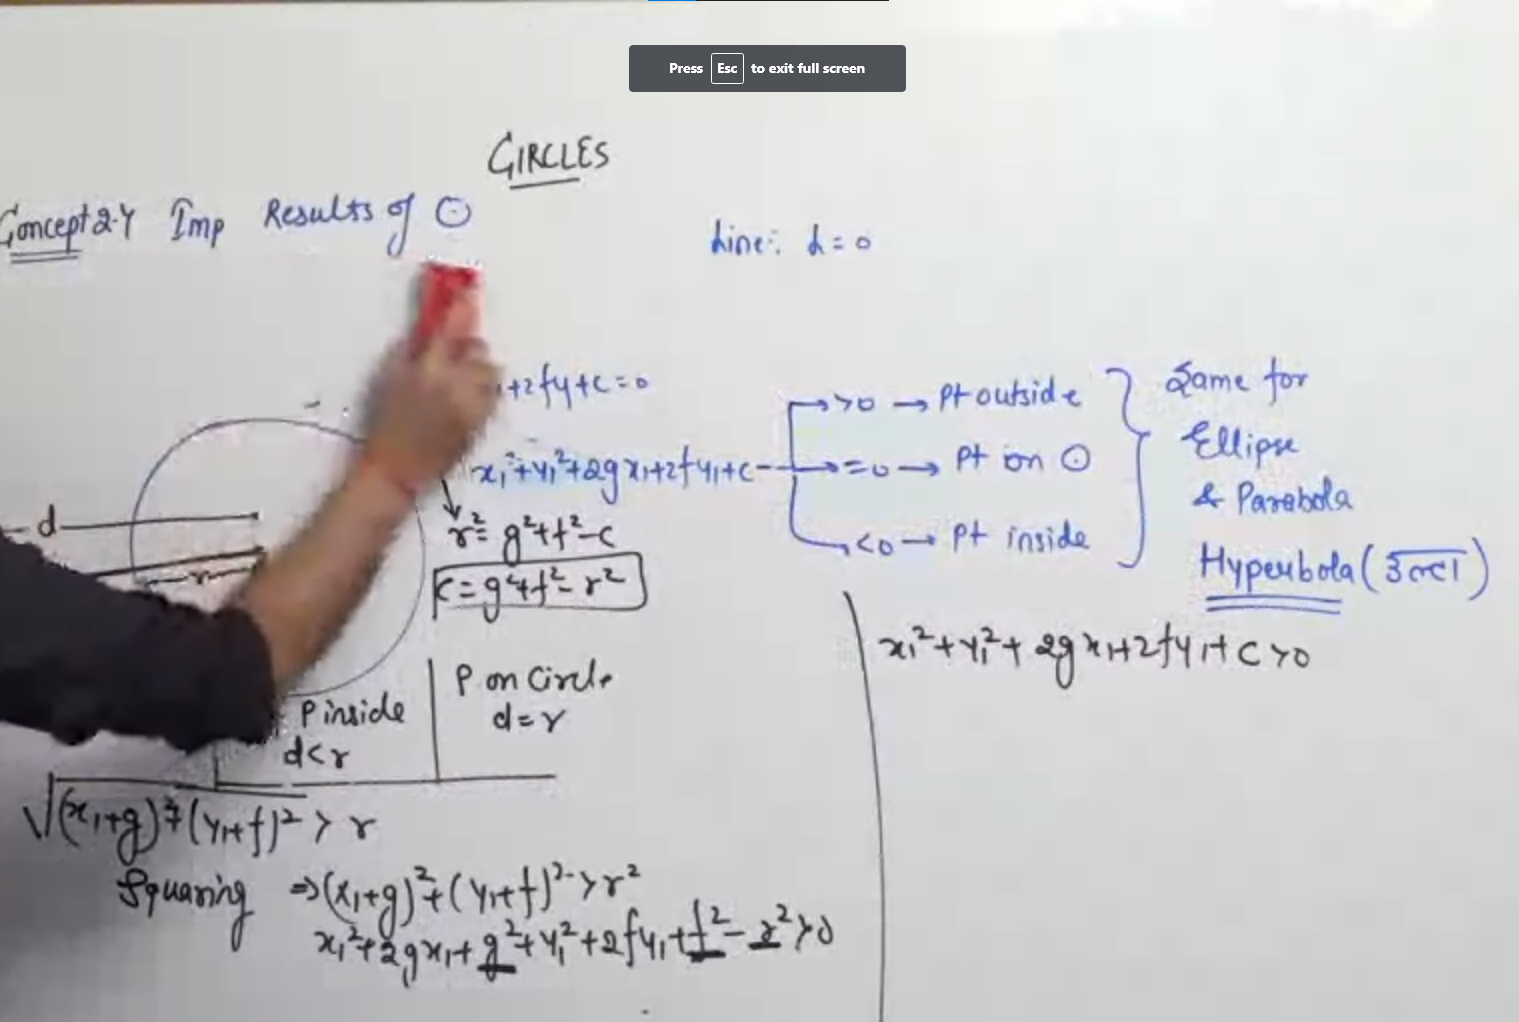 Press Esc to exit full screen
CIRCLES
Concept 2.4 Imp Results of ⊙
Line: L = 0
+2fy+c=0
x₁²+y₁²+2gx₁+2fy₁+c
>0 → Pt outside
=0 → Pt on ⊙
<0 → Pt inside
Same for
Ellipse
& Parabola
Hyperbola (उल्टा)
d
r
r²= g²+f²-c
c=g²+f²-r²
P inside
d<r
P on Circle
d=r
x₁²+y₁²+2gx₁+2fy₁+c>0
√(x₁+g)²+(y₁+f)² > r
Squaring ⇒(x₁+g)²+(y₁+f)²>r²
x₁²+2gx₁+g²+y₁²+2fy₁+f²-r²>0